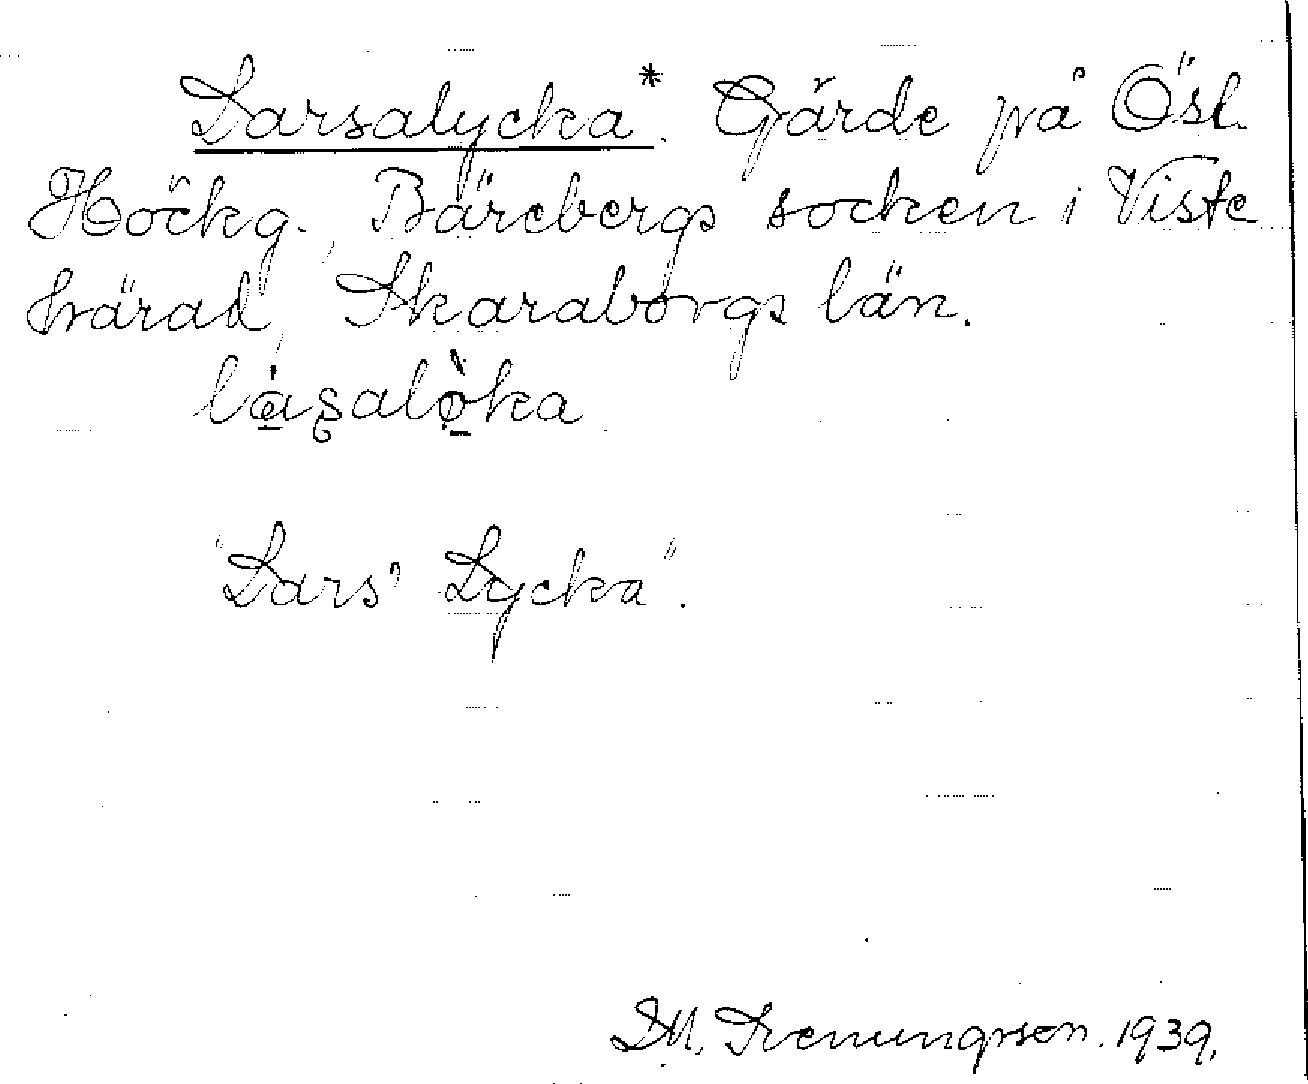 Larsalycka*. Gärde på Öst.
Höckg., Bärebergs socken i Viste
härad, Skaraborgs län.
là̱ʂalò̱ka
"Lars' Lycka".
D.M. 1939.